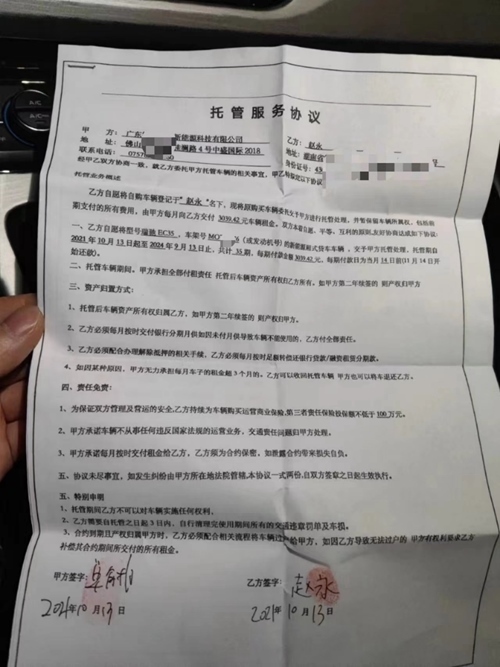 托管服务协议
甲 方:广东 新能源科技有限公司
地 址:佛山 澜路 4 号中盛国际 2018
联系电话:0757
乙方:赵永
湖南省
身份证号:43
经甲乙双方协商一致,就乙方委托甲方托管车辆的相关事宜,甲乙特签此以下协议
托管业务概述
乙方自愿将自购车辆登记于“赵永”名下,现将原购买车辆委托予甲方进行托管处理,并暂保留车辆所属权,包括按
期支付的所有费用,由甲方每月向乙方交付 3039.42 元车辆租金。双方本着自愿、平等、互利的原则,友好协商达成如下协议:
一、乙方自愿将型号瑞驰 EC35,车架号 MO (或发动机号)的新能源厢式货车车辆,交予甲方托管处理,托管期自
2021 年 10 月 13 日起至 2024 年 9 月 13 日止,共计 35 期,每期付款金额 3039.42 元,每期付款日为当月 14 日前(11 月 14 日开
始还款)。
二、托管车辆期间,甲方承担全部付租责任 托管后车辆资产所有权归乙方所有,如甲方第二年续签的 则产权归甲方
三、资产归置方式:
1、托管后车辆资产所有权归属乙方,如甲方第二年续签的 则产权归甲方。
2、乙方必须每月按时交付银行分期月供如因未付月供导致车辆不能使用的,乙方付全部责任。
3、乙方必须配合办理解除抵押的相关手续,乙方必须每月按时足额偿还银行贷款/融资租赁分期款。
4、如因某种原因,甲方无力承担每月车子的租金超 3 个月的,乙方可以收回托管车辆 甲方也可以将车退还乙方。
四、责任免责:
1、为保证双方管理及营运的安全,乙方持续为车辆购买运营商业保险,第三者责任保险投保额不低于 100 万元。
2、甲方承诺车辆不从事任何违反国家法规的运营业务,交通责任问题归甲方处理。
3、甲方承诺每月按时交付租金给乙方,乙方须为合约保密,如泄露合约带来损失自负。
五、协议未尽事宜,如发生纠纷由甲方所在地法院管辖,本协议一式两份,自双方签章之日起生效执行。
五、特别申明
1、托管期间乙方不可以对车辆实施任何权利,
2、乙方需要自托管之日起 3 日内、自行清理完使用期间所有的交通违章罚单及车损。
3、合约到期且产权归属甲方时、乙方必须配合相关流程将车辆过户给甲方,如因乙方导致无法过户的 甲方有权利要求乙方
补偿其合约期间所交付的所有租金。
甲方签字:
乙方签字:赵永
2021年10月13日
2021年10月13日